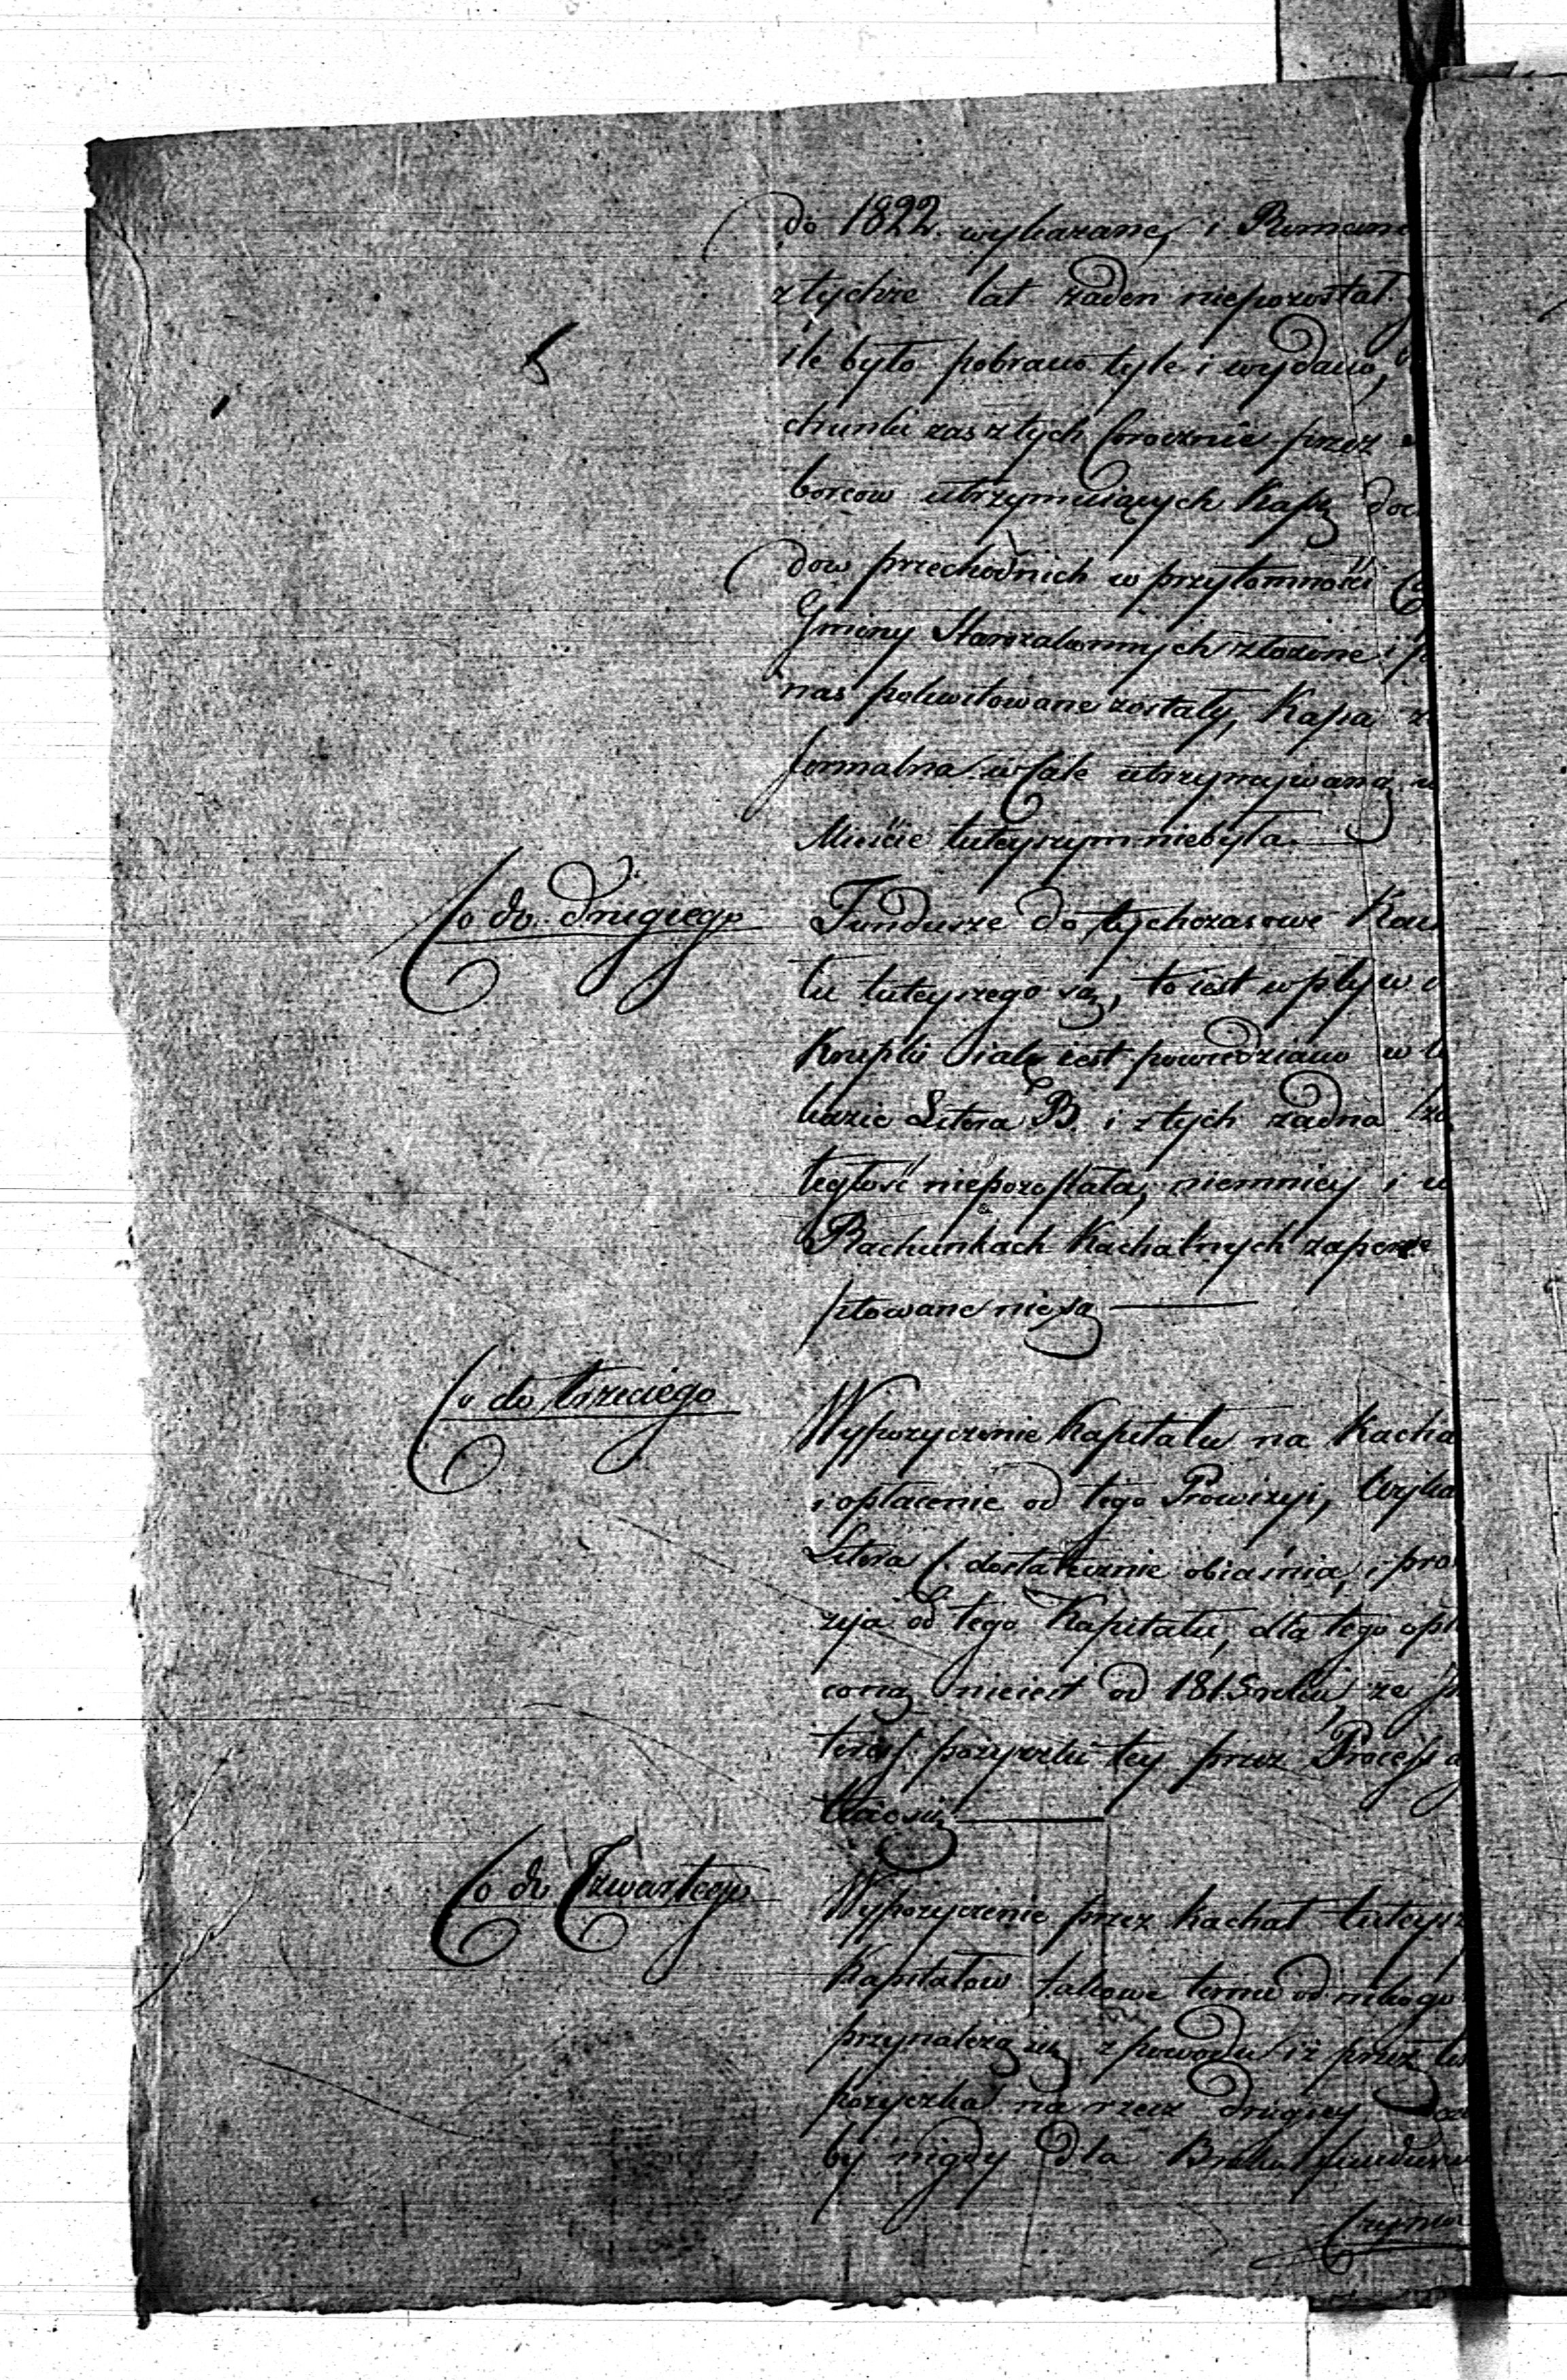 do 1822. wykazane, i Remane
z tychże lat żaden niepozostał.
ile było pobrano tyle i wydano,
chunki zas z tych Corocznie przez
borców utrzymuiących Kassę doc
dow przechodnich w przytomności C
Gminy Starozakonnych złożone i p
nas pokwitowane zostały, Kassa z
formalna wcale utrzymywaną w
Mieście tuteyszym niebyła.
Co do drugiego
Fundusze do tychczasowe Kac
łu tuteyszego są, to iest wpływ
Krupki iak iest powiedziano w
kazie Litera B. i z tych żadna
ległość niepozostała, niemniey i w
Rachunkach Kachalnych zaperce
ptowane nie są
Co do trzeciego
Wypozyczenie Kapitału na Kacha
i opłacenie od tego Prowizyi, Wyka
Litera C. dostatecznie obiaśnia, i pro
zyia od tego Kapitału, dla tego opła
coną nieiest od 1815 roku, że In
teress pozyczki tey przez Process
tłoczo się
Co do Czwartego
Wypozyczenie przez Kachał tuteysz
Kapitałów takowe temu od nikogo
przynalezą się z powodu iż przez
pozyczka na rzecz drugiey
by nigdy dla Braku fundusz